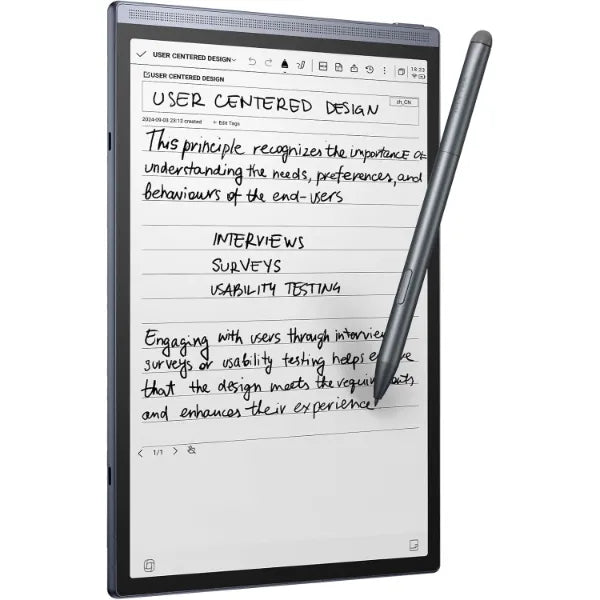 USER CENTERED DESIGN
18:23
USER CENTERED DESIGN
USER CENTERED DESIGN
zh_CN
2024-09-03 23:12 created + Edit Tags
This principle recognizes the importance of
understanding the needs, preferences, and
behaviours of the end-users
INTERVIEWS
SURVEYS
USABILITY TESTING
Engaging with users through interview
surveys or usability testing helps
that the design meets the requirements
and enhances their experience
1/1